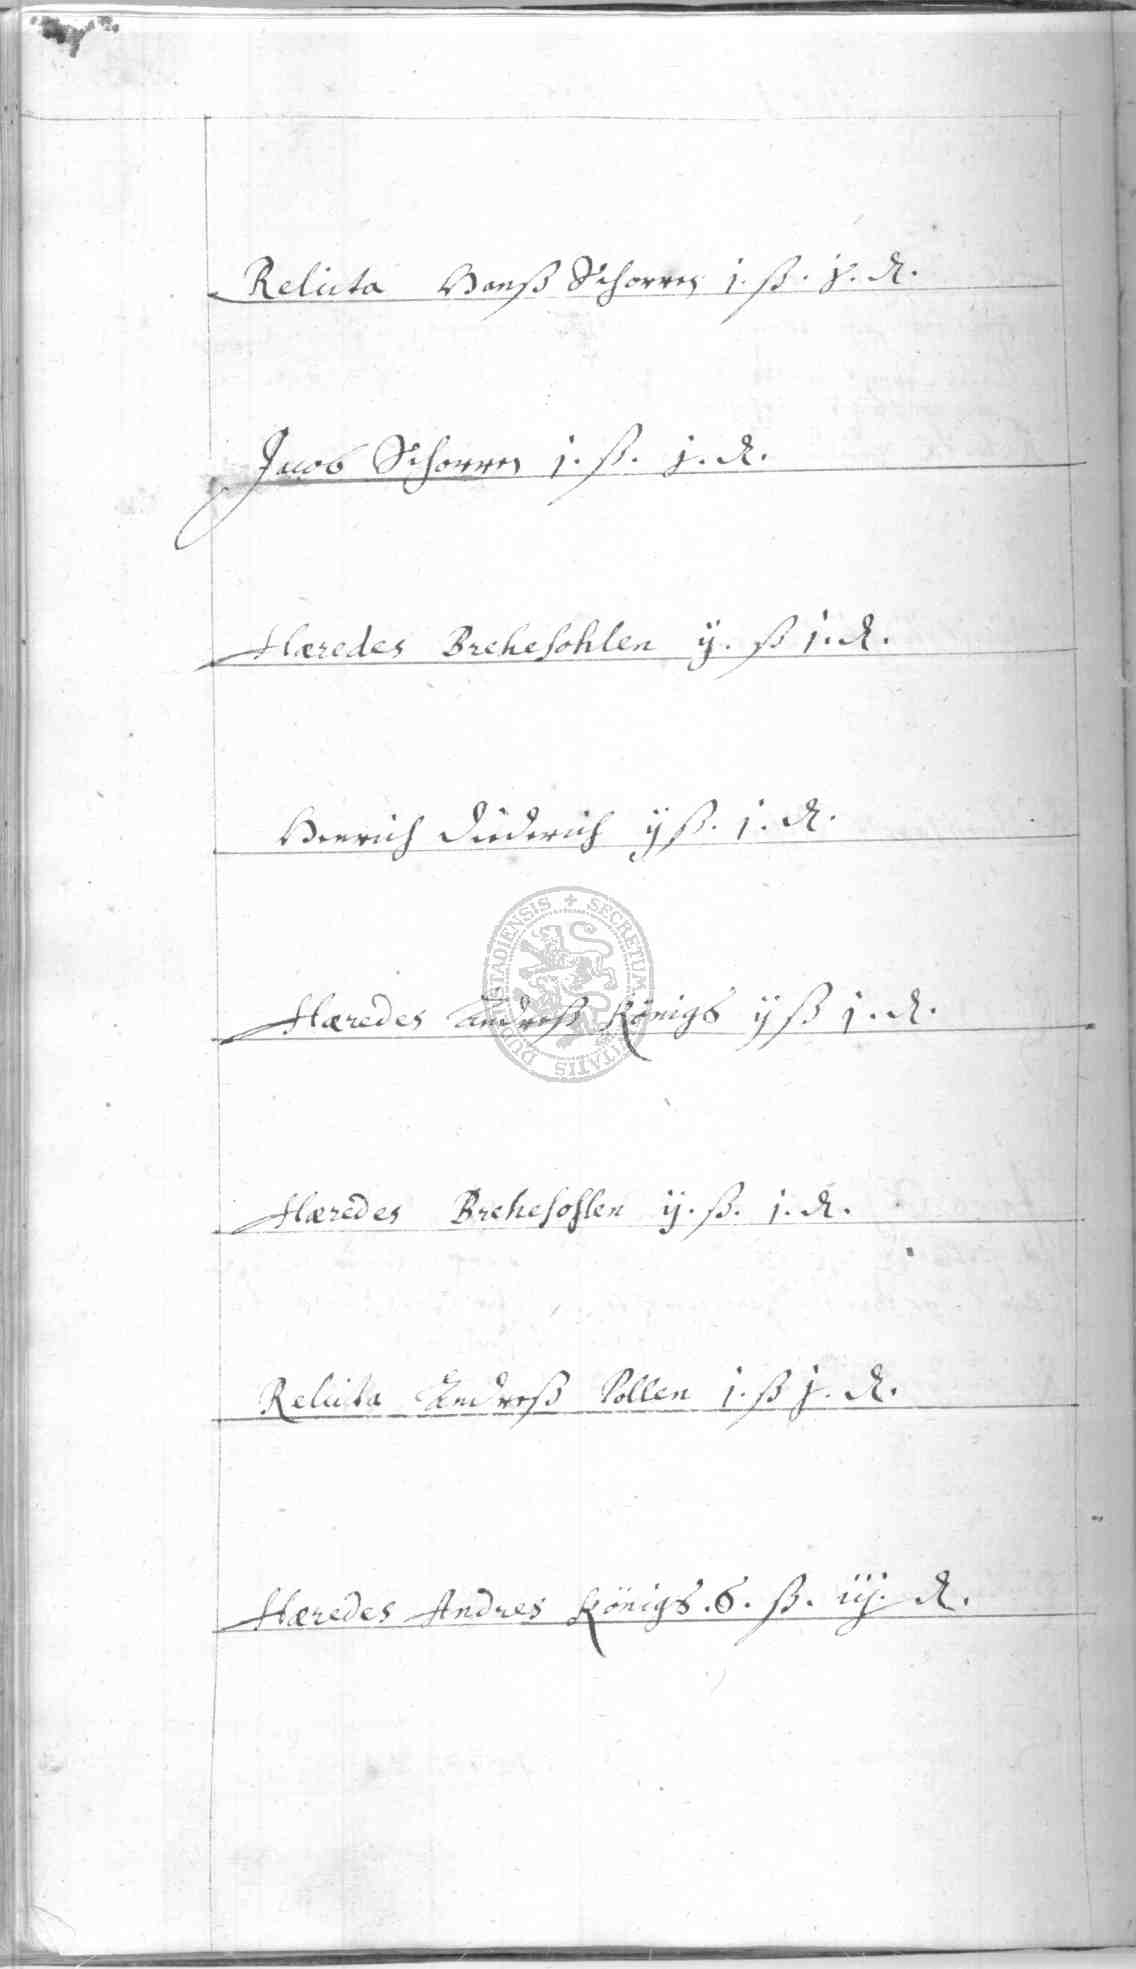 Relicta Hanß Schorren j. ß. j. ₰.
Jacob Schorren j. ß. j. ₰.
Hæredes Brehesohlen ij. ß j. ₰.
Henrich Diederich ij ß. j. ₰.
Hæredes Andreß Königs ij ß j. ₰.
SECRETUM CIVITATIS DUDERSTADIENSIS
Hæredes Brehesohlen ij. ß. j. ₰.
Relicta Andreß Pollen j. ß j. ₰.
Hæredes Andres Königs. 6. ß. iij. ₰.